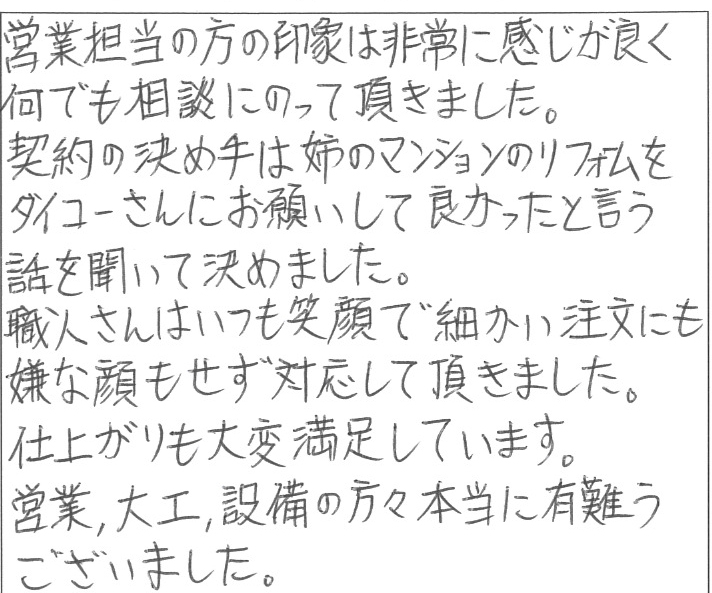 営業担当の方の印象は非常に感じが良く
何でも相談にのって頂きました。
契約の決め手は姉のマンションのリフォムを
ダイユーさんにお願いして良かったと言う
話を聞いて決めました。
職人さんはいつも笑顔で細かい注文にも
嫌な顔もせず対応して頂きました。
仕上がりも大変満足しています。
営業,大工,設備の方々本当に有難う
ございました。